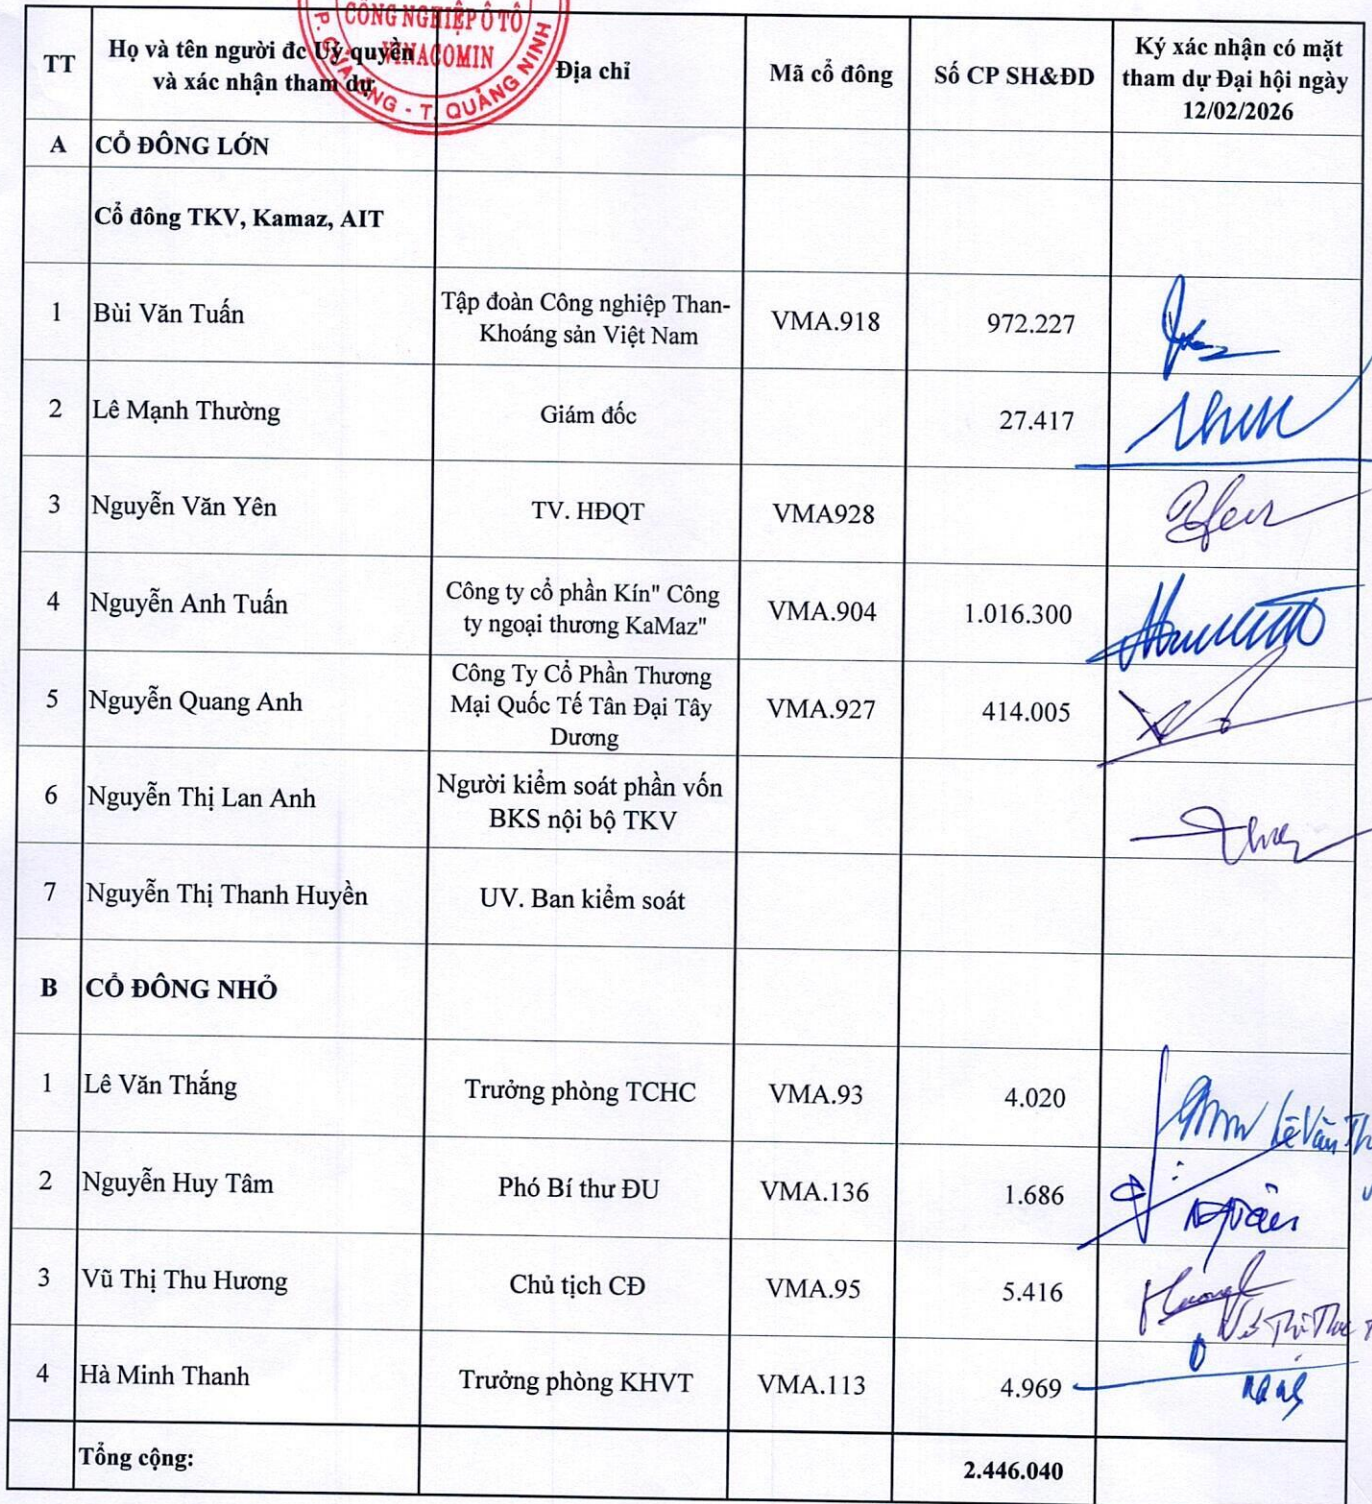 CÔNG NGHIỆP Ô TÔ
VINACOMIN
T. QUẢNG NINH
TT
Họ và tên người đc Uỷ quyền
và xác nhận tham dự
Địa chỉ
Mã cổ đông
Số CP SH&ĐD
Ký xác nhận có mặt
tham dự Đại hội ngày
12/02/2026
A CỔ ĐÔNG LỚN
Cổ đông TKV, Kamaz, AIT
1 Bùi Văn Tuấn
Tập đoàn Công nghiệp Than-
Khoáng sản Việt Nam
VMA.918 972.227
2 Lê Mạnh Thường Giám đốc 27.417
3 Nguyễn Văn Yên TV. HĐQT VMA928
4 Nguyễn Anh Tuấn
Công ty cổ phần Kín" Công
ty ngoại thương KaMaz"
VMA.904 1.016.300
5 Nguyễn Quang Anh
Công Ty Cổ Phần Thương
Mại Quốc Tế Tân Đại Tây
Dương
VMA.927 414.005
6 Nguyễn Thị Lan Anh
Người kiểm soát phần vốn
BKS nội bộ TKV
7 Nguyễn Thị Thanh Huyền UV. Ban kiểm soát
B CỔ ĐÔNG NHỎ
1 Lê Văn Thắng Trưởng phòng TCHC VMA.93 4.020
Lê Văn
2 Nguyễn Huy Tâm Phó Bí thư ĐU VMA.136 1.686
3 Vũ Thị Thu Hương Chủ tịch CĐ VMA.95 5.416
4 Hà Minh Thanh Trưởng phòng KHVT VMA.113 4.969
Tổng cộng: 2.446.040